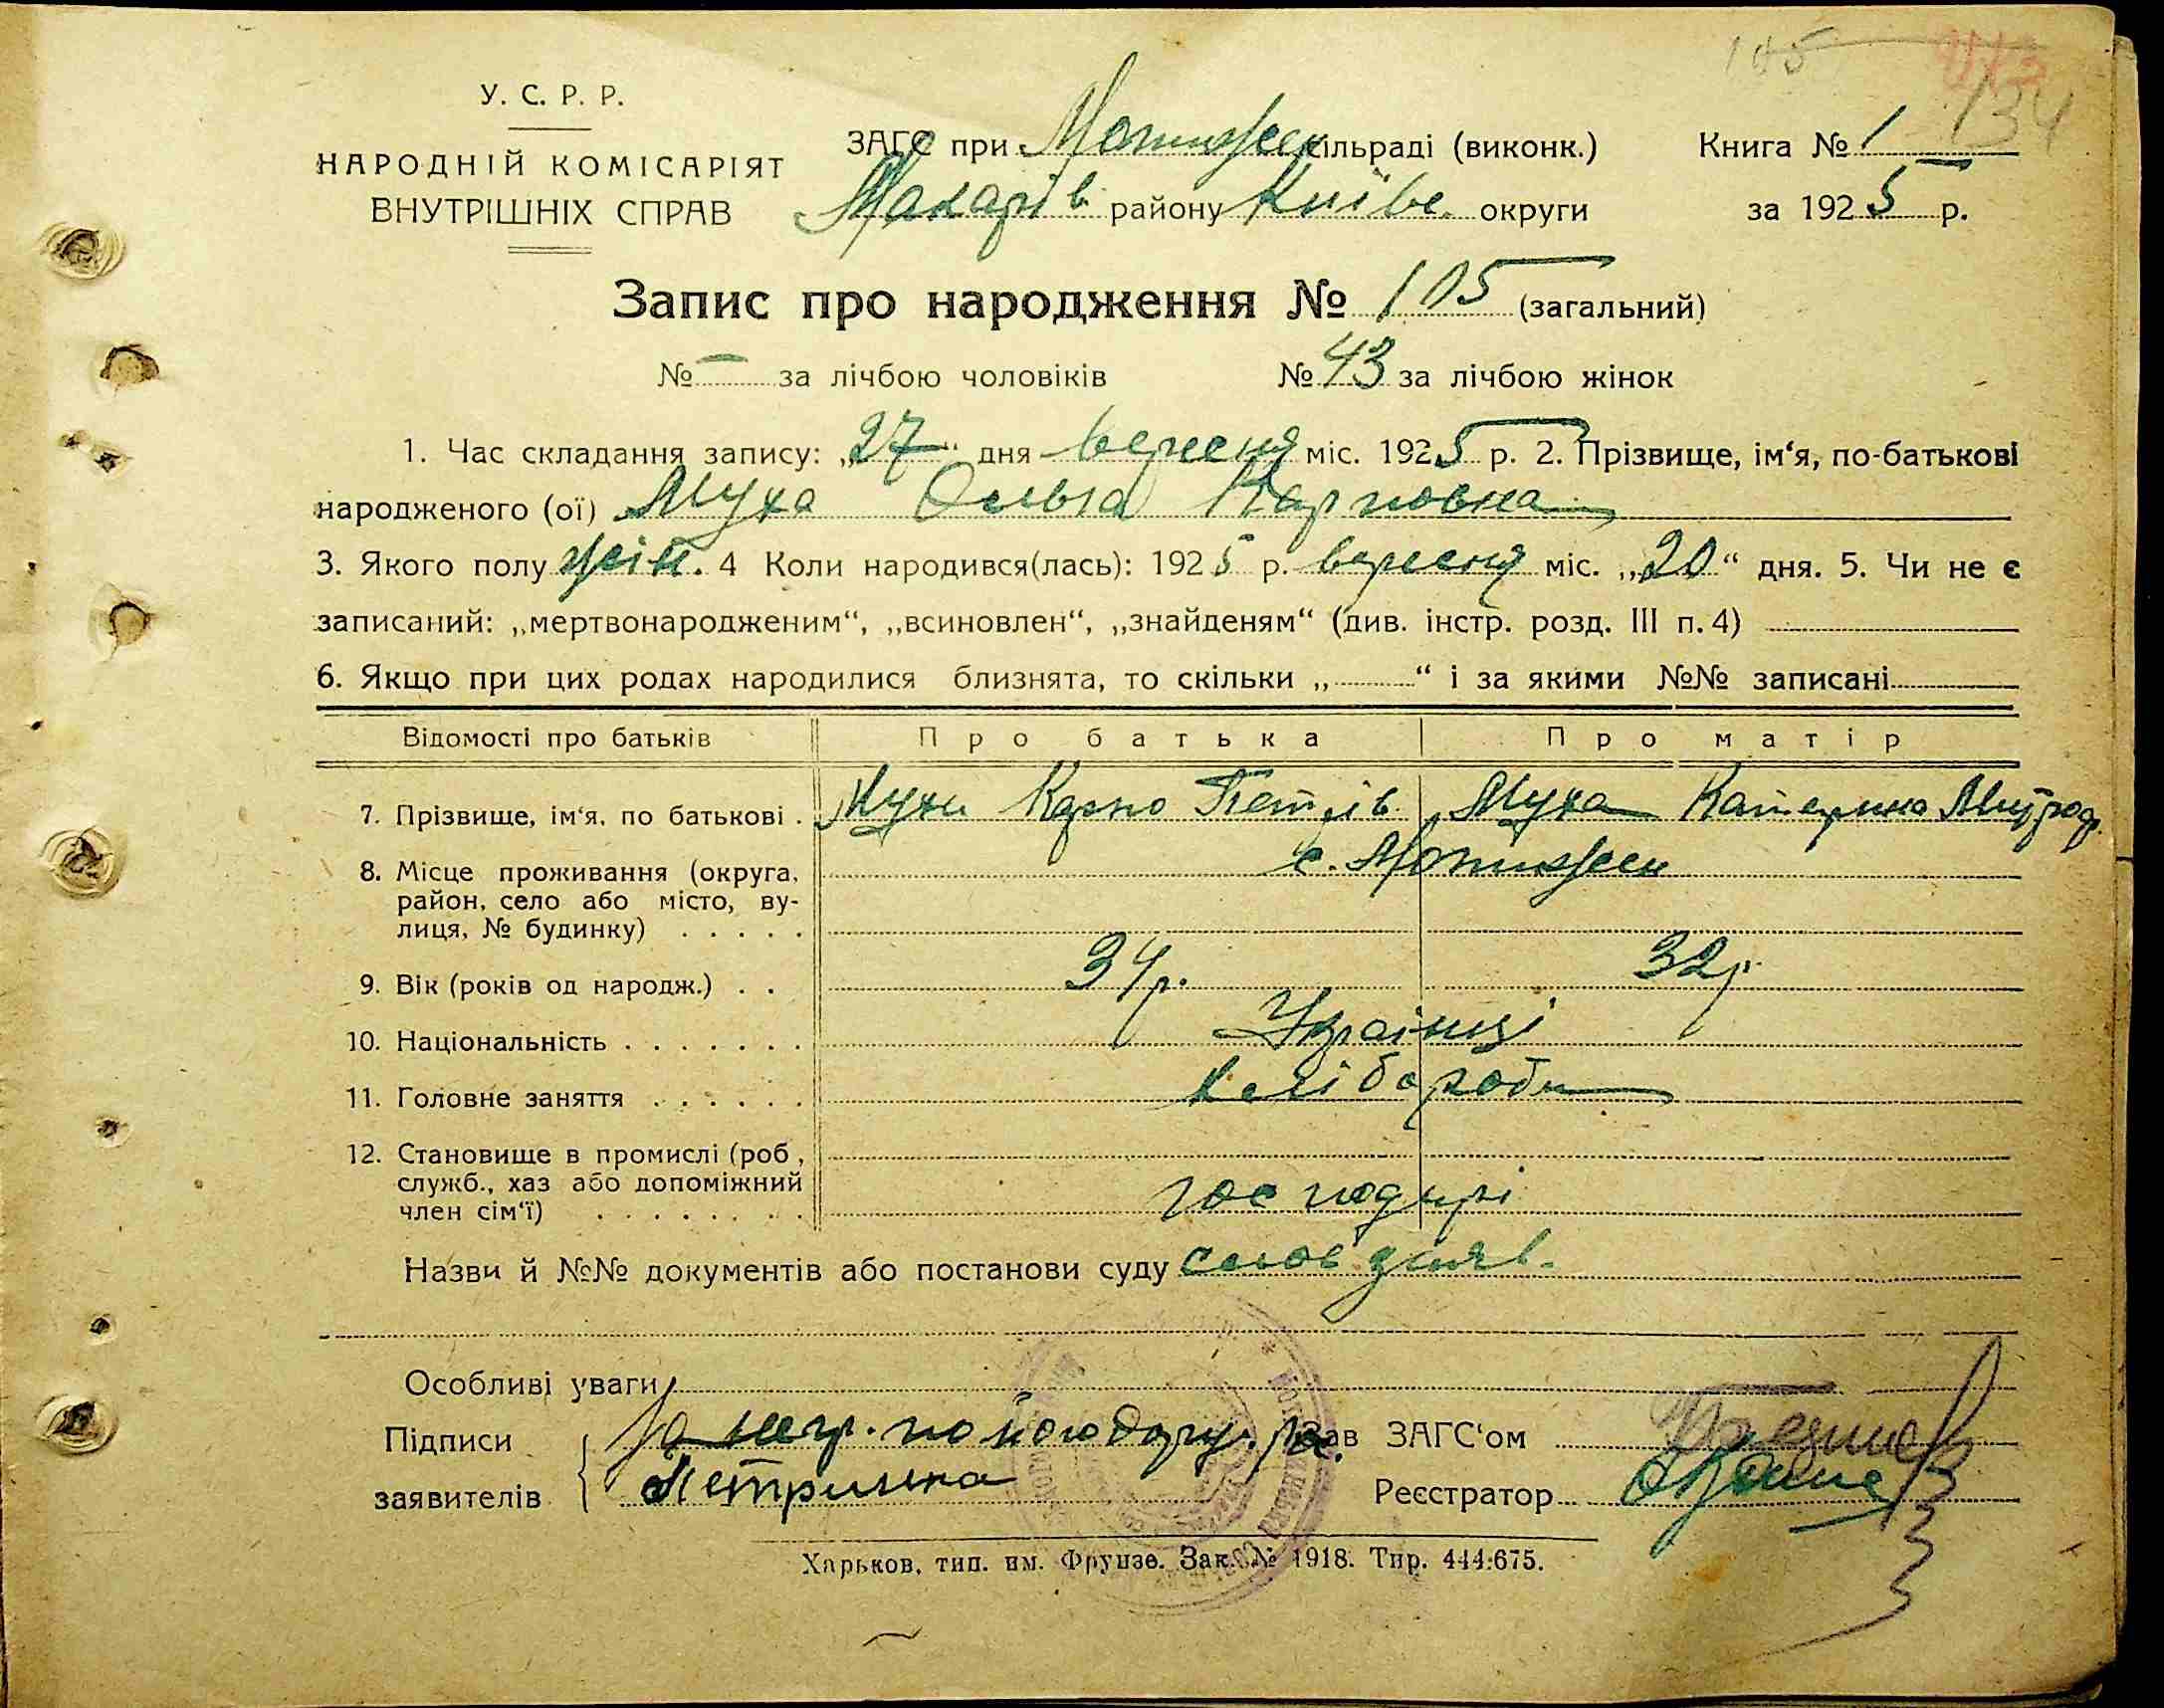 105
134
У. С. Р. Р.
НАРОДНІЙ КОМІСАРІЯТ
ВНУТРІШНІХ СПРАВ
ЗАГС при Мотижен сільраді (виконк.)
Макарів району Київс. округи
Книга № 1
за 1925 р.
Запис про народження № 105 (загальний)
№ — за лічбою чоловіків № 43 за лічбою жінок
1. Час складання запису: „27“ дня вересня міс. 1925 р. 2. Прізвище, ім‘я, по-батькові
народженого (ої) Муха Ольга Карповна
3. Якого полу жін. 4 Коли народився(лась): 1925 р. вересня міс. „20“ дня. 5. Чи не є
записаний: „мертвонародженим“, „всиновлен“, „знайденям“ (див. інстр. розд. III п. 4)
6. Якщо при цих родах народилися близнята, то скільки „ “ і за якими №№ записані
Відомості про батьків Про батька Про матір
7. Прізвище, ім‘я, по батькові . Муха Карпо Петрів Муха Катерина
8. Місце проживання (округа, с. Мотижен
район, село або місто, ву-
лиця, № будинку) . . . . .
9. Вік (років од народж.) . . 34 р. 32 р.
10. Національність . . . . . . . Українці
11. Головне заняття . . . . . . хлібороби
12. Становище в промислі (роб.,
служб., хаз або допоміжний
член сім‘ї) . . . . . . . . господарі
Назви й №№ документів або постанови суду слов заяв.
Особливі уваги
Підписи За негр. по його дору. рос. Зав ЗАГС‘ом
заявителів Петриченко Реєстратор
Харьков, тип. им. Фрунзе. Зак. № 1918. Тир. 444.675.